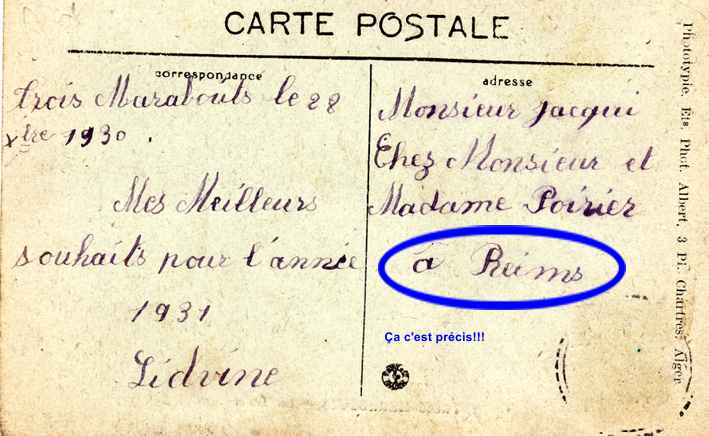 CARTE POSTALE
correspondance
trois Marabouts le 28
Xbre 1930.
Mes Meilleurs
souhaits pour l'année
1931
Lidvine
adresse
Monsieur Jacqui
Chez Monsieur et
Madame Poirier
à Reims
Ça c'est précis!!!
Phototypie, Ets. Phot. Albert, 3 Pl. Chartres, Alger